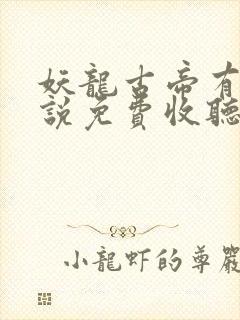 妖龍古帝有
說免費收聽
小龍虾的尊嚴